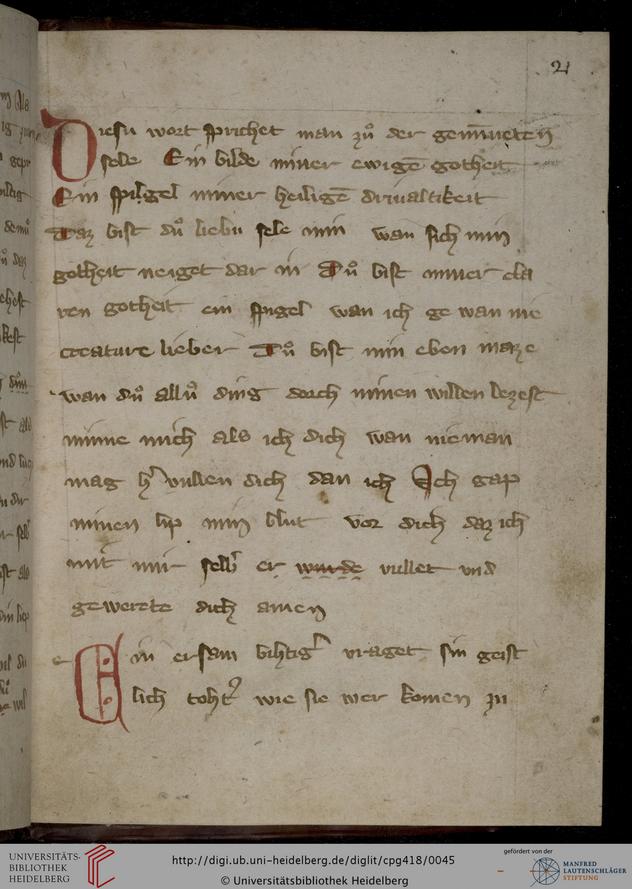 21
Diesu wort sprichet man zů der geminneten
sele Ein bilde miner ewigē gotheit
Ein spigel miner heiligē drivaltikeit
Daz bist dů liebu sele min wan sich min
gotheit neiget dar in Dů bist miner cla
ren gotheit ein spigel wan ich ge wan nie
creature lieber Dů bist min eben maze
wan dů allů ding dorch minen willen lezest
minne mich als ich dich wan nieman
mag h vullen dich dan ich Ich gap
minen lip min blut vor dich daz ich
mit mir selb er wurde vullet vnd
gewerete dich amen
e Ein ersam bihtig vraget sin geist
lich toht wie sie wer komen zu
UNIVERSITÄTS-
BIBLIOTHEK
HEIDELBERG
http://digi.ub.uni-heidelberg.de/diglit/cpg418/0045
© Universitätsbibliothek Heidelberg
gefördert von der
MANFRED
LAUTENSCHLÄGER
STIFTUNG